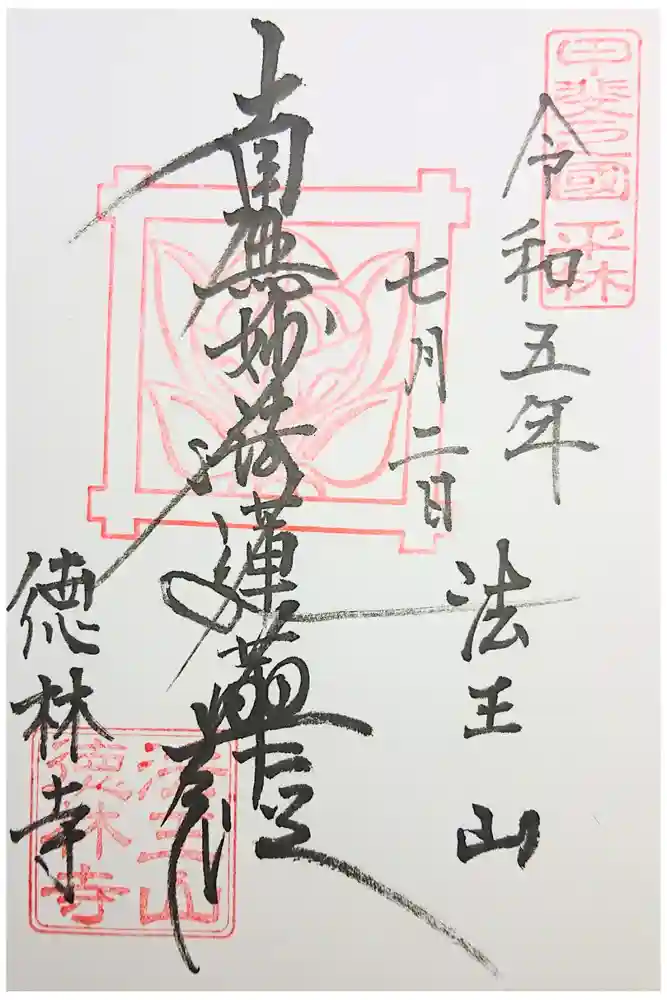 甲斐之國 平林
令和五年
七月二日
法王山
南無妙法蓮華経
徳林寺
法王山
徳林寺